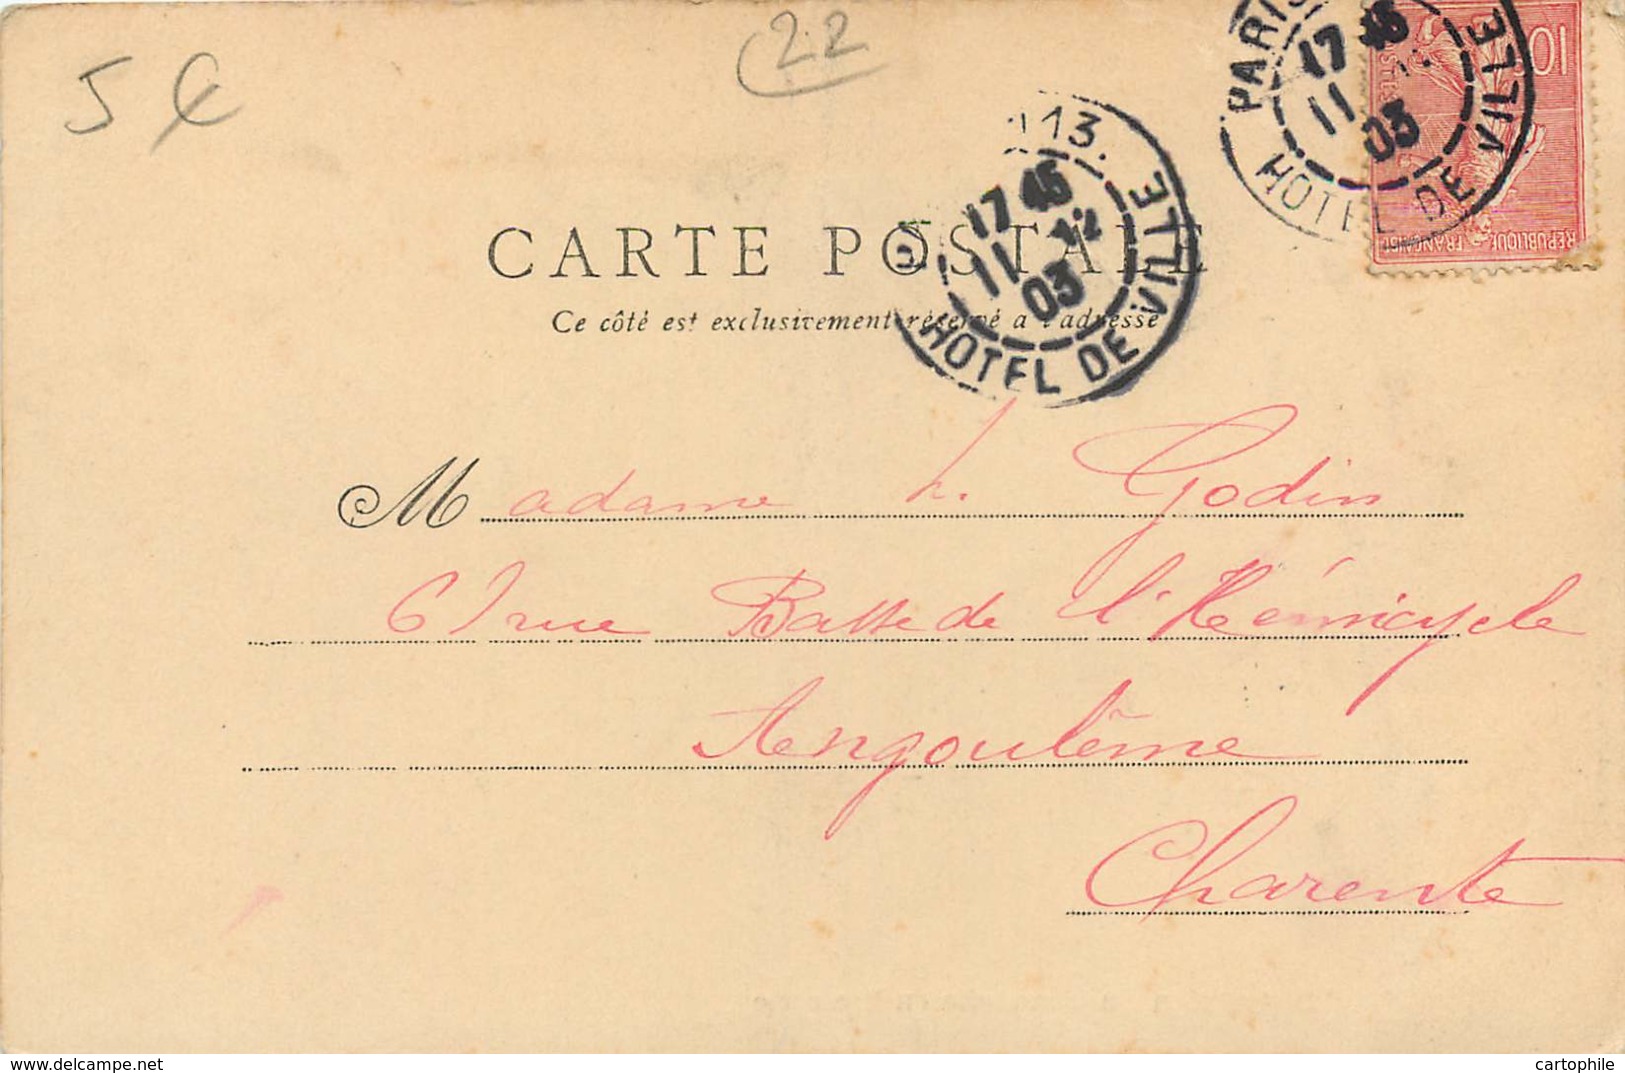 5 €
22
PARIS
17 45
11
03
HOTEL DE VILLE
10
POSTES
REPUBLIQUE FRANÇAISE
113.
17 45
11 12
03
HOTEL DE VILLE
CARTE POSTALE
Ce côté est exclusivement réservé a l'adresse
Madame L. Godin
61 rue Basse de l'Hémicycle
Angoulême
Charente
www.delcampe.net
cartophile